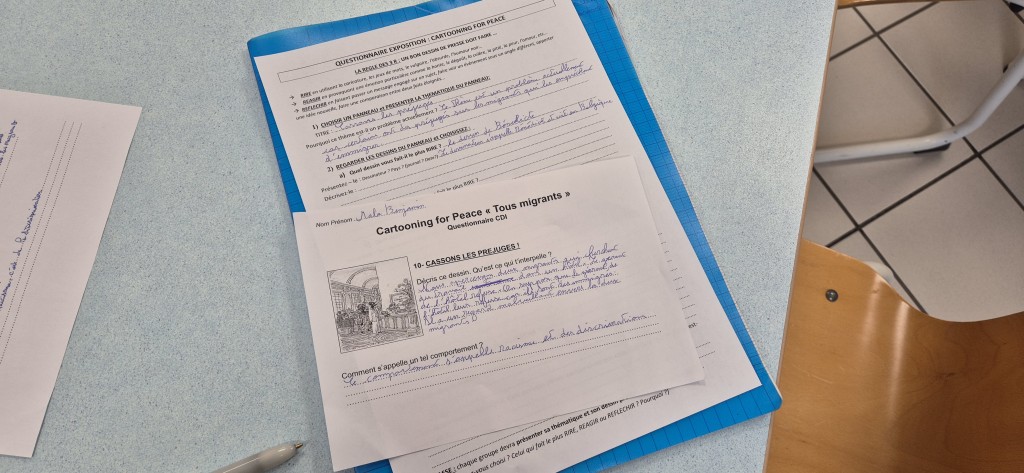 QUESTIONNAIRE EXPOSITION : CARTOONING FOR PEACE
LA REGLE DES 3 R : UN BON DESSIN DE PRESSE DOIT FAIRE ...
→ RIRE en utilisant la caricature, les jeux de mots, le vulgaire, l'absurde, l'humour noir...
→ REAGIR en provoquant une émotion particulière comme la honte, le dégoût, la colère, la pitié, la peur, l'humour, etc...
→ REFLECHIR en faisant passer un message engagé sur un sujet, faire voir un évènement sous un angle différent, apporter
une idée nouvelle, faire une comparaison entre deux faits éloignés...
1) CHOISIR UN PANNEAU et PRÉSENTER LA THEMATIQUE DU PANNEAU:
TITRE : Cassons les préjugés
Pourquoi ce thème est-il un problème actuellement ? Ce thème est un problème actuellement
car certains ont des préjugés sur les migrants que les empêchent
d'emmigrer.
2) REGARDER LES DESSINS DU PANNEAU et CHOISISSEZ :
a) Quel dessin vous fait-il le plus RIRE ? le dessin de Bénédicte
Présentez – le : Dessinateur ? Pays ? Journal ? Date ? La dessinatrice s'appelle Bénédicte et vit en Belgique
Décrivez-le :
fait le plus RIRE ?
Nom Prénom : Benjamin
Cartooning for Peace « Tous migrants »
Questionnaire CDI
10- CASSONS LES PREJUGES !
Décris ce dessin. Qu'est ce qui t'interpelle ?
Nous apercevons deux migrants qui cherchent
du travail dans un hôtel. Le gérant
de l'hôtel refuse. On suppose que le gérant de
l'hôtel leur refuse car ils sont des immigrés.
Il a un regard envers les deux
migrants.
Comment s'appelle un tel comportement ?
Le comportement s'appelle racisme et des discriminations
chaque groupe devra présenter sa thématique et son dessin
vous choisi ? Celui qui fait le plus RIRE, REAGIR ou REFLECHIR ? Pourquoi ?)